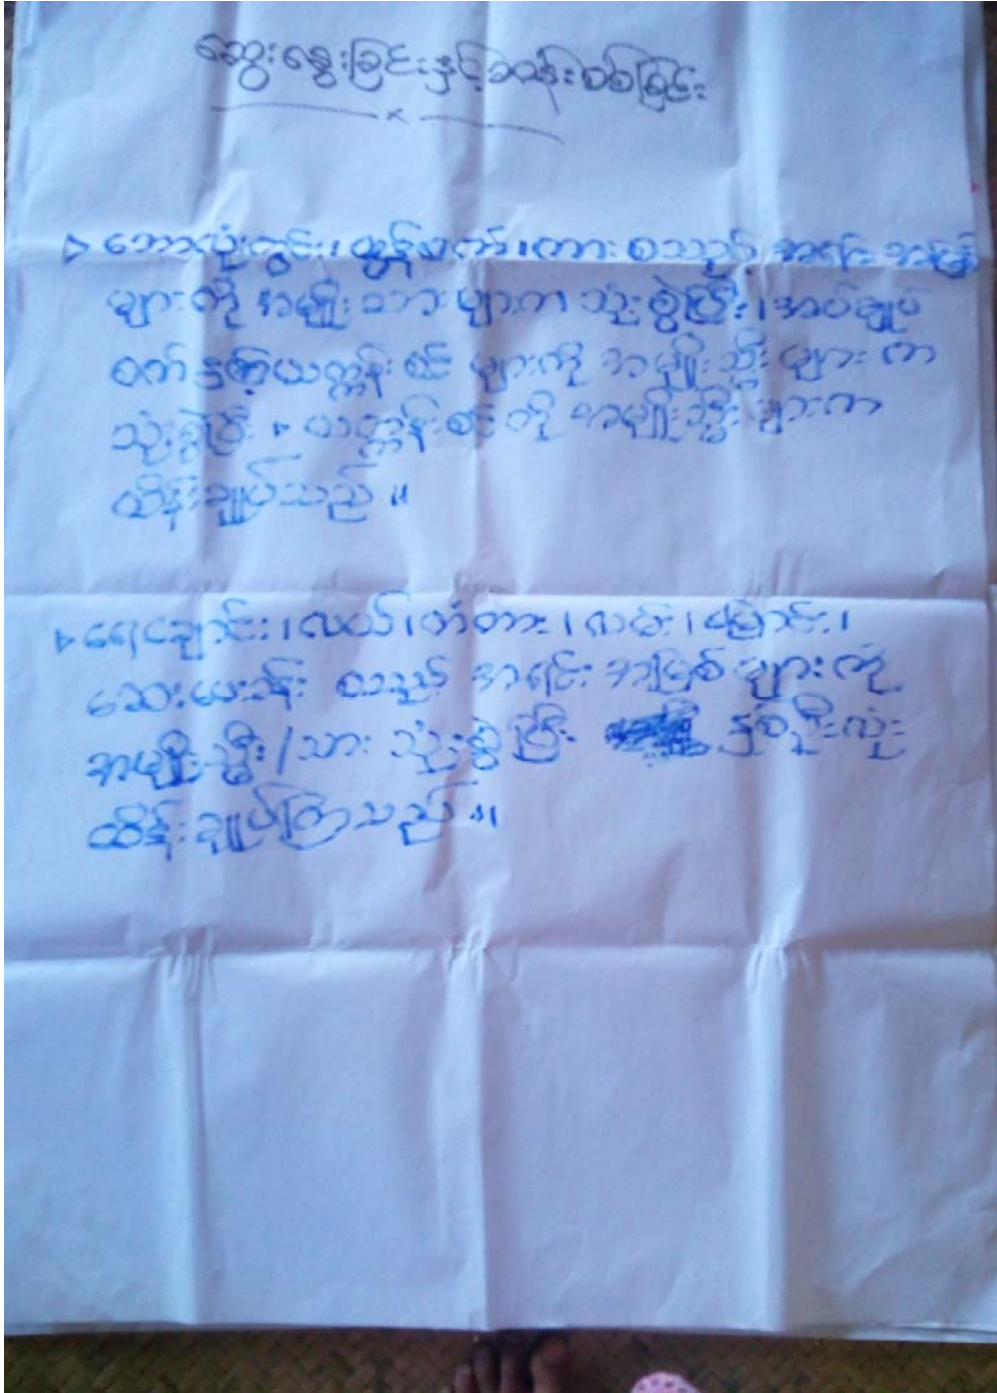 ဆွေးနွေးခြင်းနှင့်ဆန်းစစ်ခြင်း
▷ ဘောလုံးကွင်း၊ ထွန်စက်၊ ကား စသည့် အရင်းအမြစ်
များကို အမျိုးသားများက သုံးစွဲပြီး၊ အပ်ချုပ်
စက်နှင့်ယက္ကန်းစင် များကို အမျိုးသ္မီးများက
သုံးစွဲပြီး ယက္ကန်းစင်ကို အမျိုးသ္မီးများက
ထိန်းချုပ်သည်။
▷ ရေချောင်း၊ လယ်၊ တံတား၊ လမ်း၊ မြောင်း၊
ဆေးပေးခန်း စသည့် အရင်းအမြစ်များကို
အမျိုးသ္မီး/သား သုံးစွဲပြီး နှစ်ဦးလုံး
ထိန်းချုပ်ကြသည်။